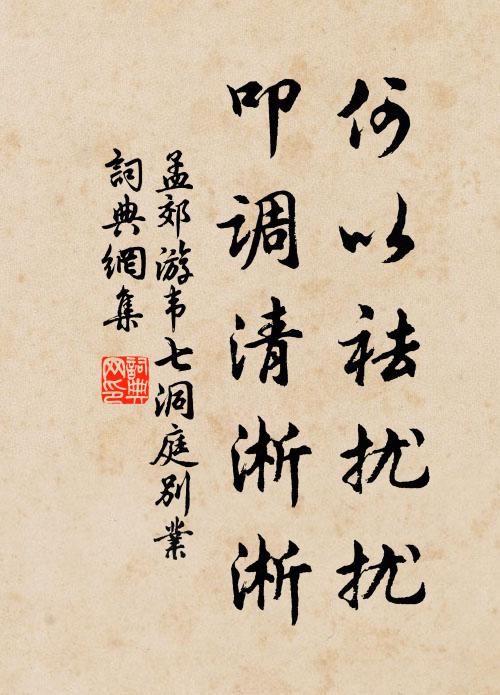 何以祛扰扰
叩调清淅淅
孟郊游韦七洞庭别业
詞典網集
詞典网印